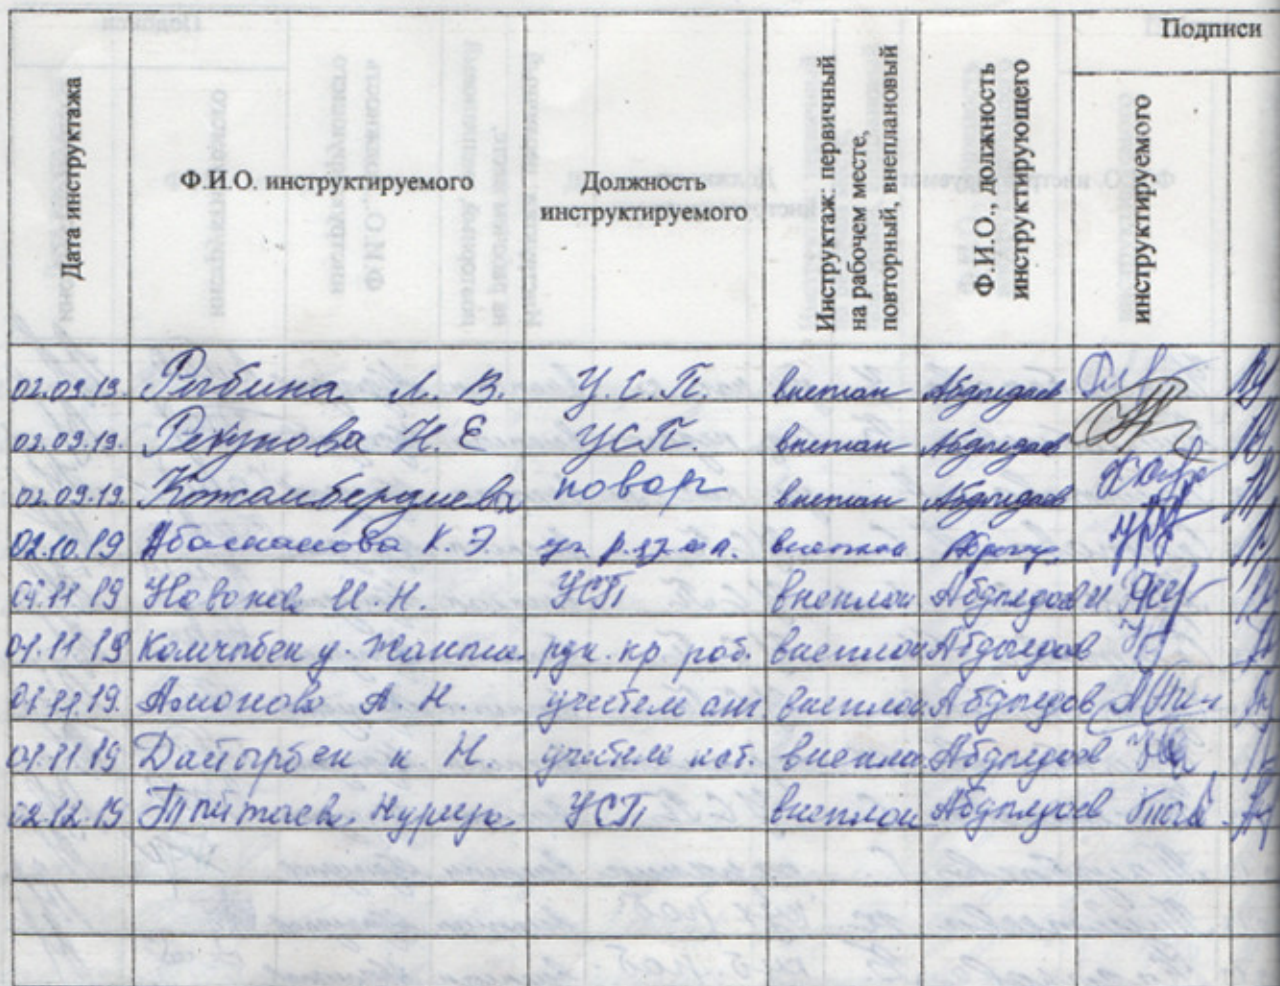 Подписи
Дата инструктажа
Ф.И.О. инструктируемого
Должность
инструктируемого
Инструктаж: первичный
на рабочем месте,
повторный, внеплановый
Ф.И.О., должность
инструктирующего
инструктируемого
02.09.19. Рыбина Л. В. У.С.П. внеплан Абдылдаев
02.09.19. Рекунова Н. Е УСП. внеплан Абдылдаев
02.09.19 Кожамбердиева повар внеплан Абдылдаев
02.10.19 К. Э. внеплан
01.11.19 И. Н. УСП внеплан Абдылдаев
01.11.19 рук. кр раб. внеплан Абдылдаев
01.11.19. Амонова А. Н. учитель анг внеплан Абдылдаев
01.11.19 Дайырбек к Н. учитель внеплан Абдылдаев
02.12.19 УСП внеплан Абдылдаев